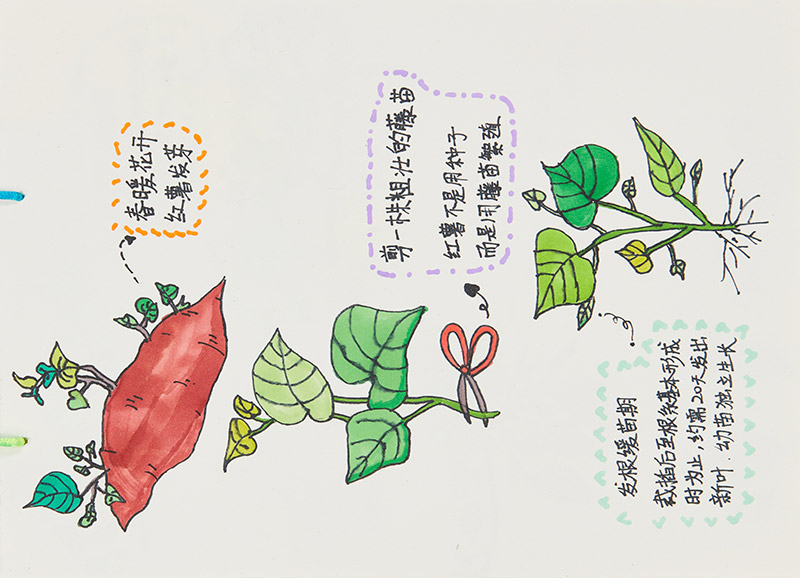 春暖花开
红薯发芽
剪一株粗壮的藤苗
红薯不是用种子
而是用藤苗繁殖
发根缓苗期
栽插后至根系基本形成
时为止，约需20天发出
新叶.幼苗独立生长